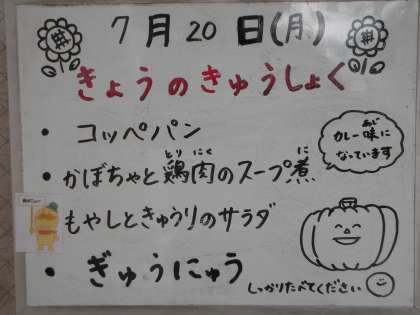 7月20日(月)
きょうのきゅうしょく
・コッペパン
・かぼちゃと鶏肉のスープ煮
とり にく に
カレー味に
あじ
なっています
もやしときゅうりのサラダ
・ぎゅうにゅう
しっかりたべてください